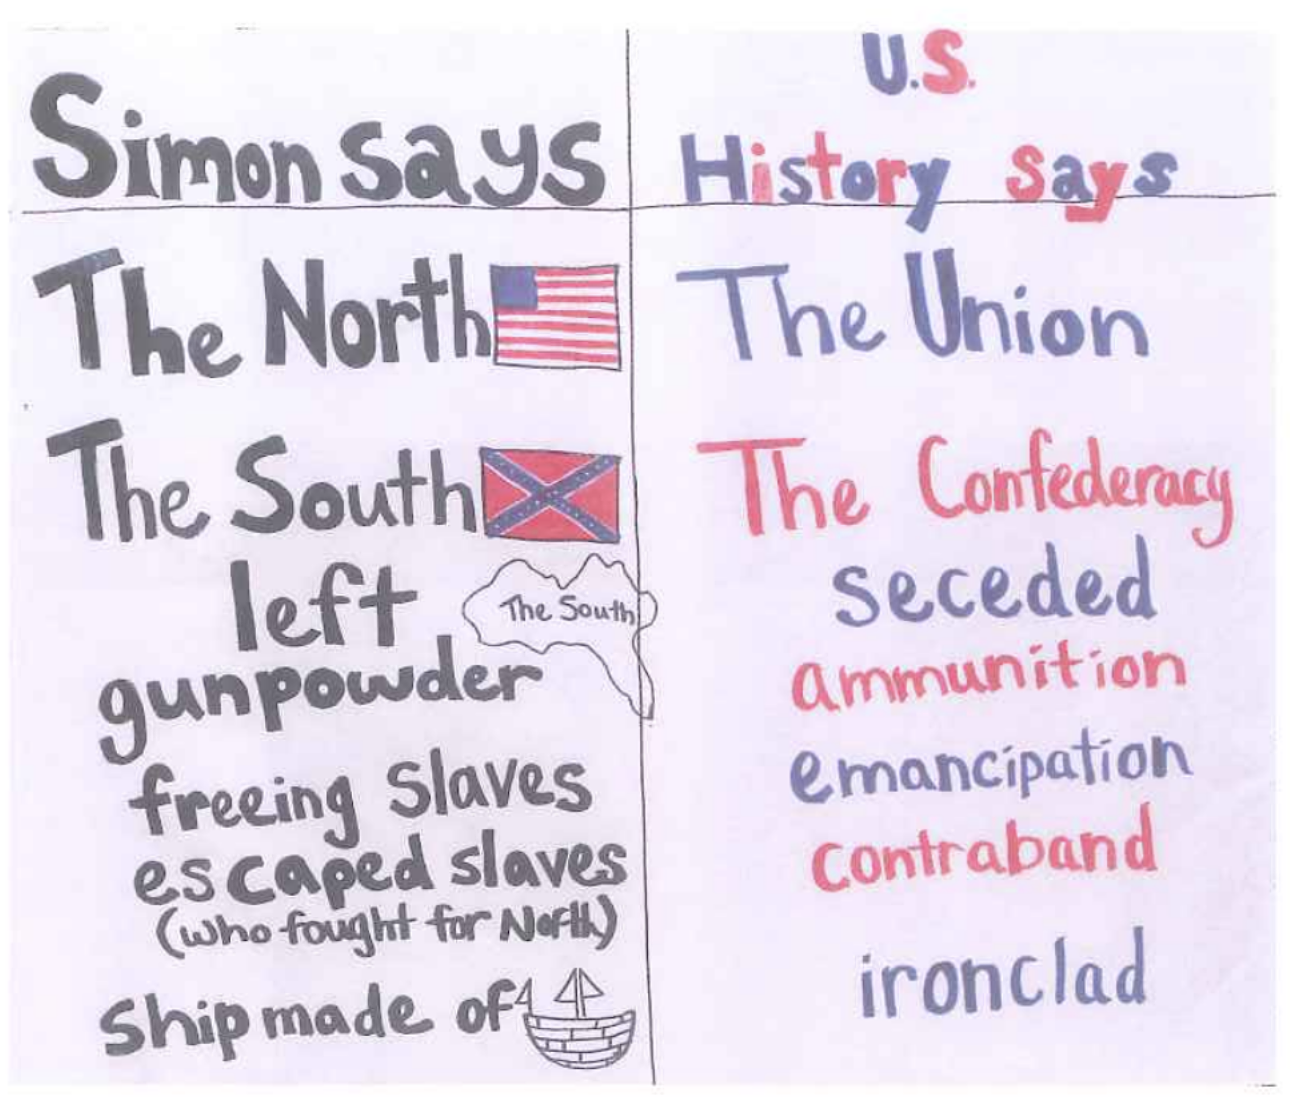 Simon says
U.S.
History says
The North
The Union
The South
The Confederacy
left
The South
seceded
gunpowder
ammunition
freeing slaves
emancipation
escaped slaves
(who fought for North)
contraband
ship made of
ironclad